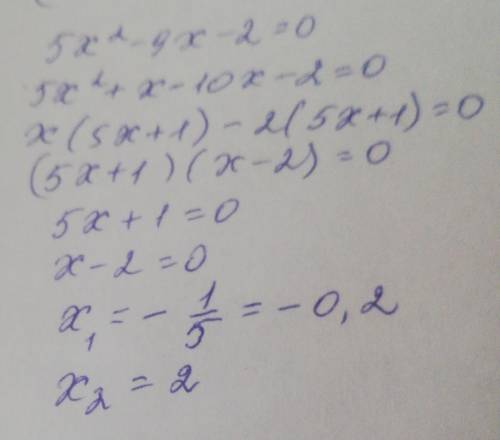 5x² - 9x - 2 = 0
5x² + x - 10x - 2 = 0
x(5x+1) - 2(5x+1) = 0
(5x+1)(x-2) = 0
5x + 1 = 0
x - 2 = 0
x₁ = - 1/5 = - 0,2
x₂ = 2